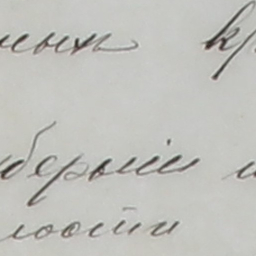 ных кр
беріи и
лости